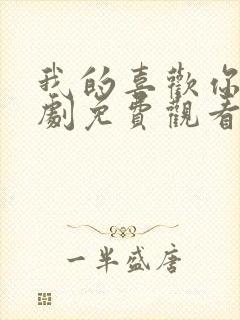 我的喜歡你
劇免費觀看
一半盛唐